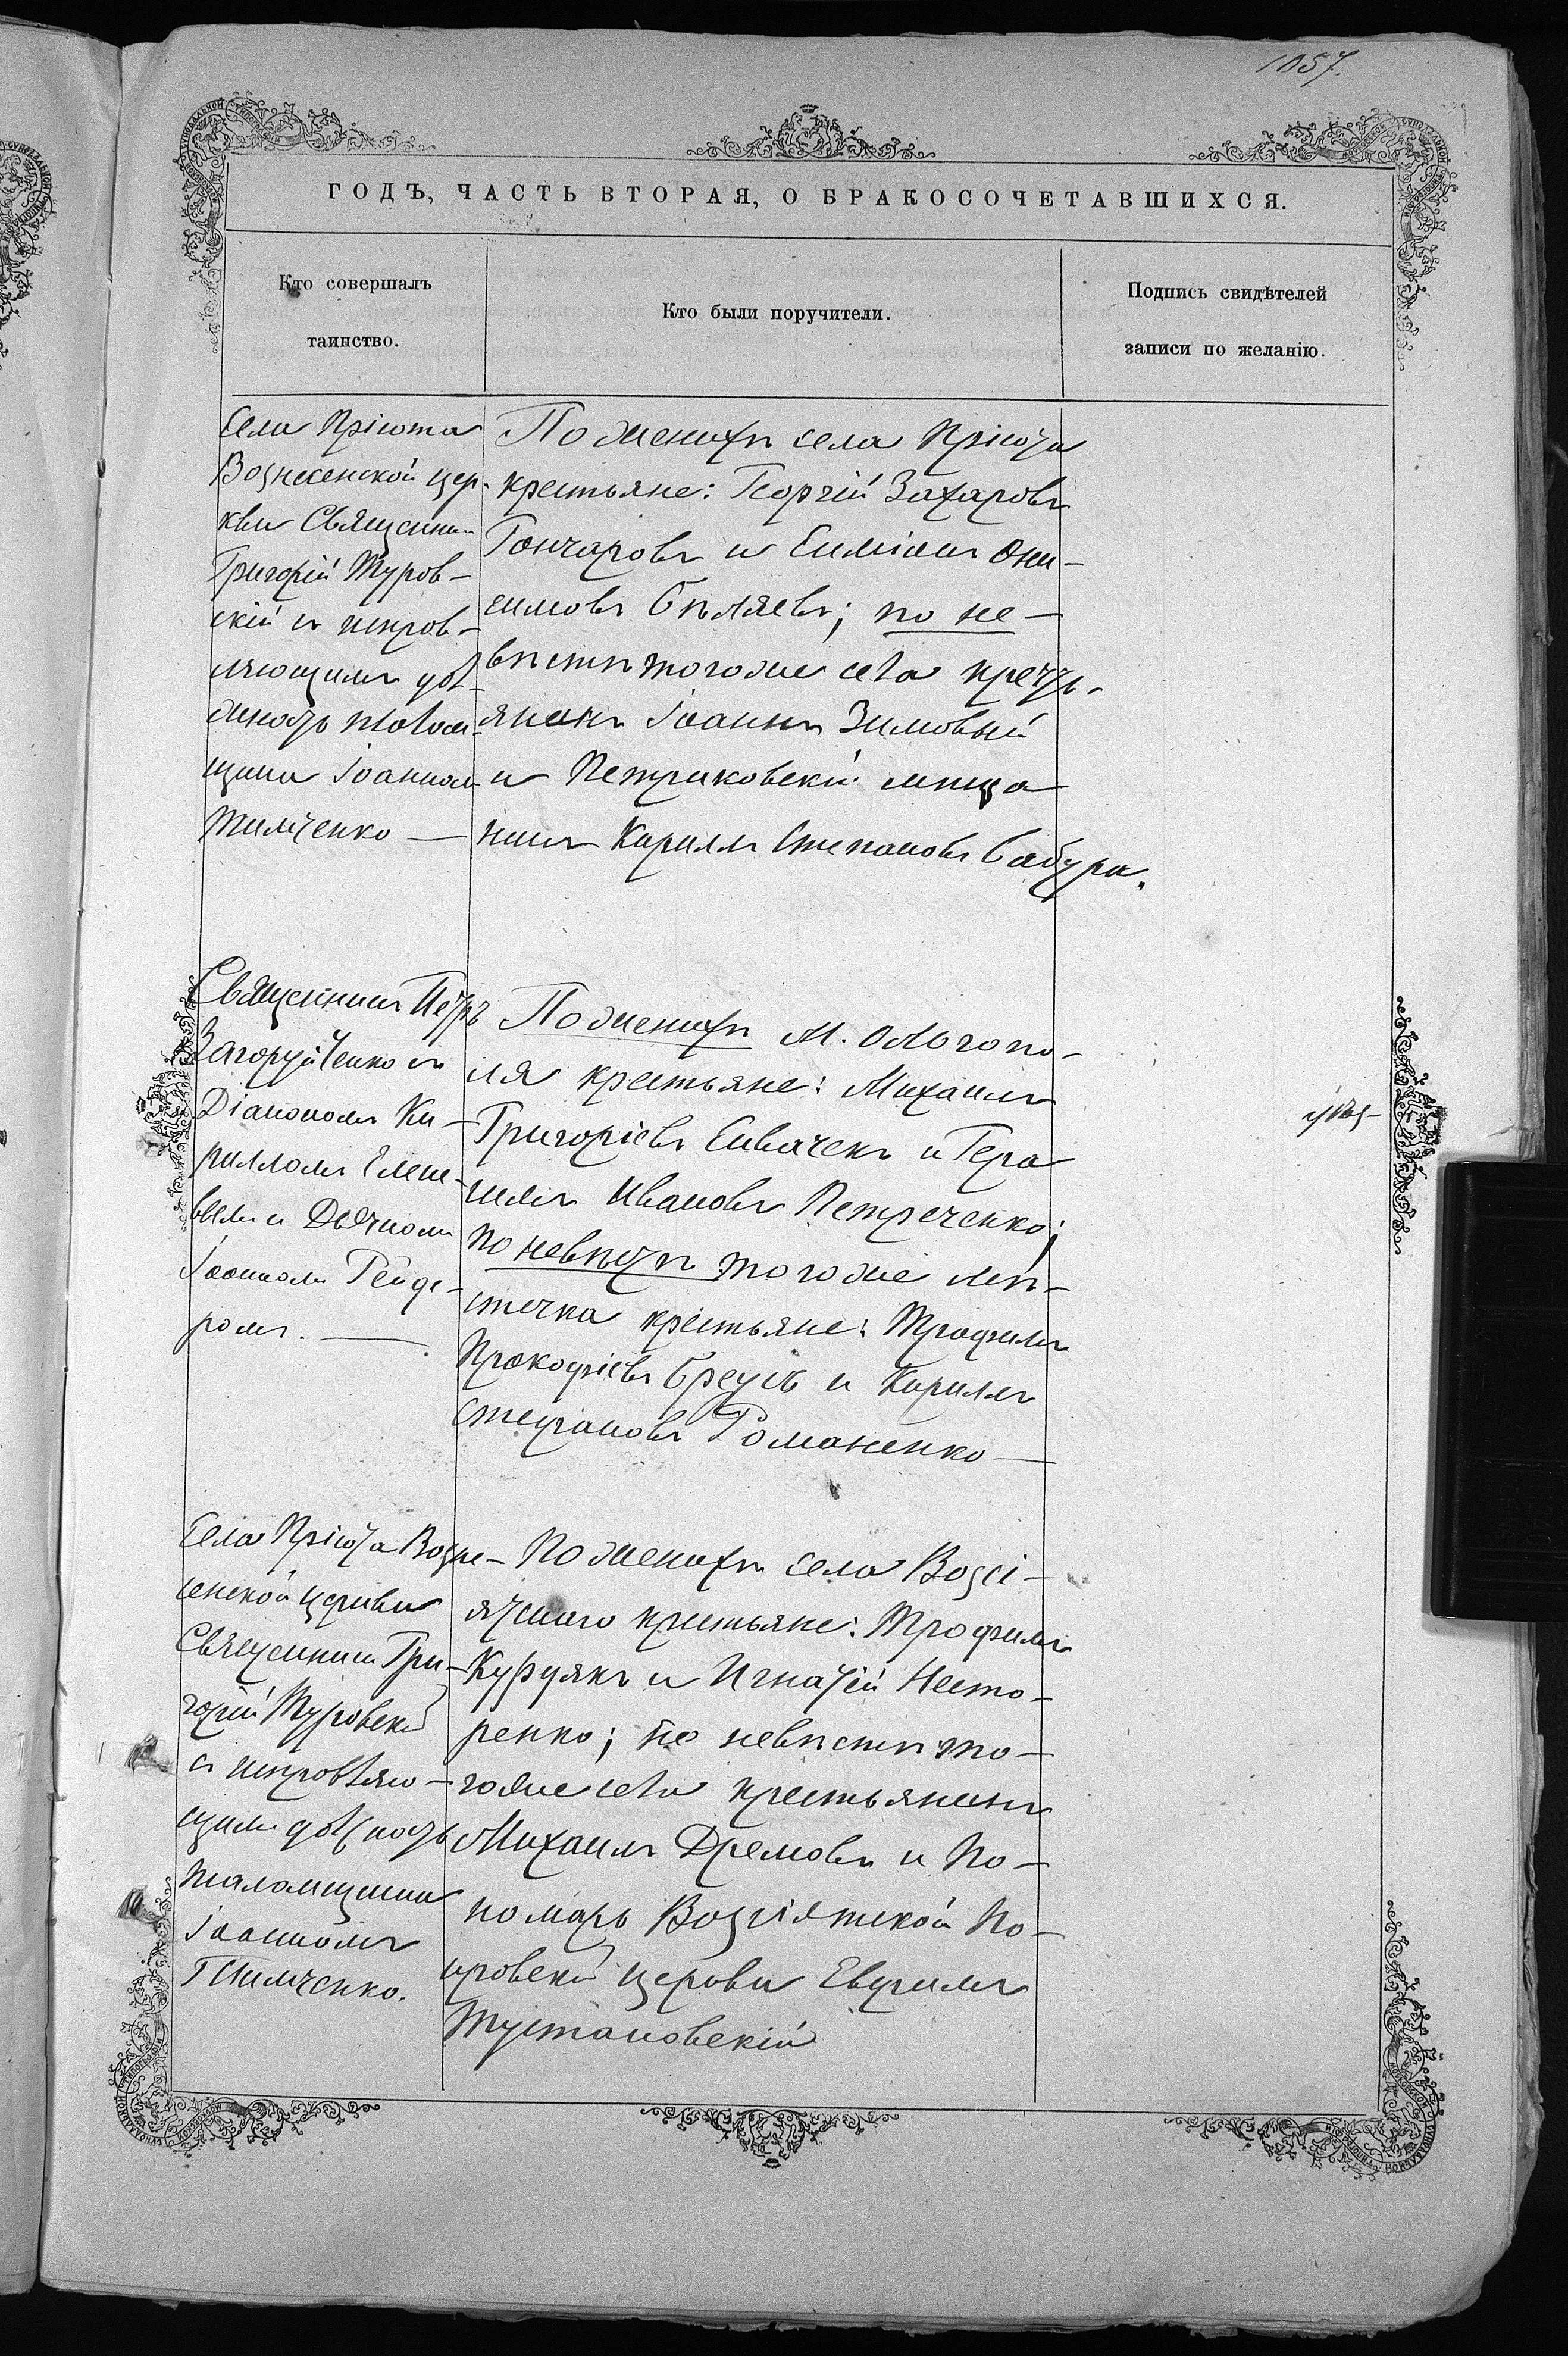 1057.
ГОДЪ, ЧАСТЬ ВТОРАЯ, О БРАКОСОЧЕТАВШИХСЯ.
Кто совершалъ
таинство.
Кто были поручители.
Подпись свидѣтелей
записи по желанію.
Села Пріюта
Вознесенской цер-
кви Священник
Григорій Туров-
скій и исправ-
ляющимъ дол-
жность псалом-
щика Іоанном
Тимченко —
По женихѣ села Пріюта
крестьяне: Георгій Захаровъ
Гончаровъ и Симіонъ Они-
симовъ Бѣляевъ; по не-
вѣстѣ тогоже села кресть-
янинъ Іоаннъ Зимовый
и Петриковскій мѣща
нинъ Кириллъ Степановъ Сабура.
Священникъ Петръ
Загоруйченко съ
Діакономъ Ки-
рилломъ
и Дьячкомъ
Іоанномъ Гейде-
ромъ. —
По женихѣ М. Ольгопо-
ля крестьяне: Михаилъ
Григоріевъ Сивачекъ и Гера
симъ Ивановъ Петреченко;
по невѣстѣ тогоже мѣ-
стечка крестьяне: Трофимъ
Прокофіевъ Бреусъ и Кириллъ
Стефановъ Романенко —
Села Пріюта Возне-
сенской церкви
Священникъ Гри-
горій Туровскій
съ исправляю-
щимъ должность
псаломщика
Іоанномъ
Тимченко.
По женихѣ села Возсі-
ятскаго крестьяне: Трофимъ
Курдякъ и Игнатій Несто-
ренко; по невѣстѣ то-
гоже села крестьянинъ
Михаилъ Дремовъ и По-
номарь Возсіятской По-
кровской церкви Евфимъ
Тустановскій